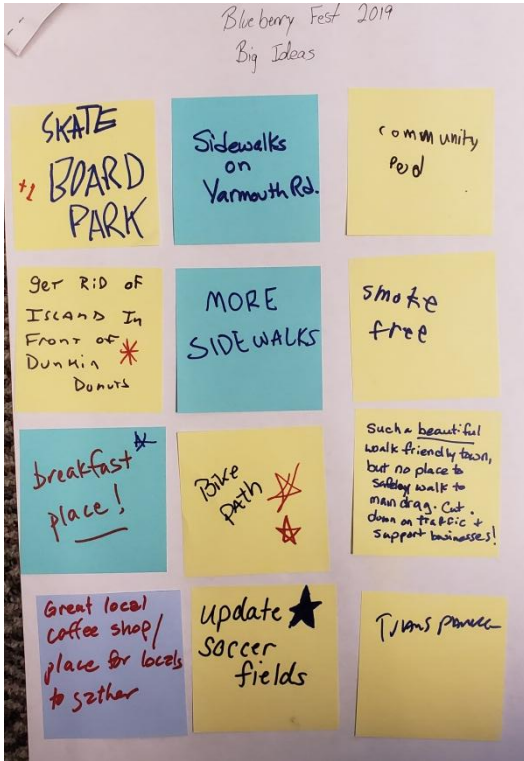 Blueberry Fest 2019
Big Ideas
SKATE
+1 BOARD
PARK
Sidewalks
on
Yarmouth Rd.
community
get RiD of
ISLAND In
Front of
Dunkin
Donuts
MORE
SIDEWALKS
smoke
free
breakfast
place!
Bike
path
Such a beautiful
walk friendly town,
but no place to
safely walk to
main drag. Cut
down on traffic +
support businesses!
Great local
coffee shop/
place for locals
to gather
update
soccer
fields